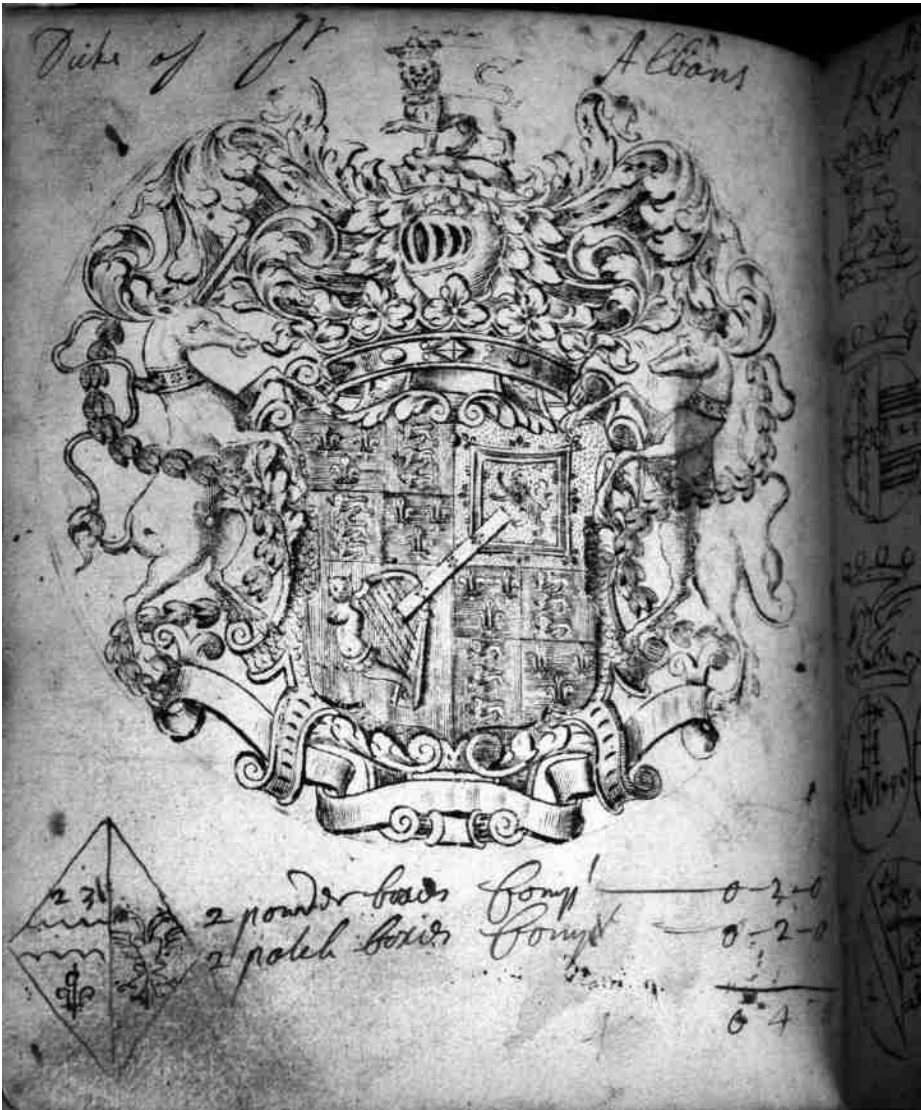 Duke of St Albans
2 3
2 powder boxes Compt 0-2-0
2 patch boxes Compt 0-2-0
0 4
H
M